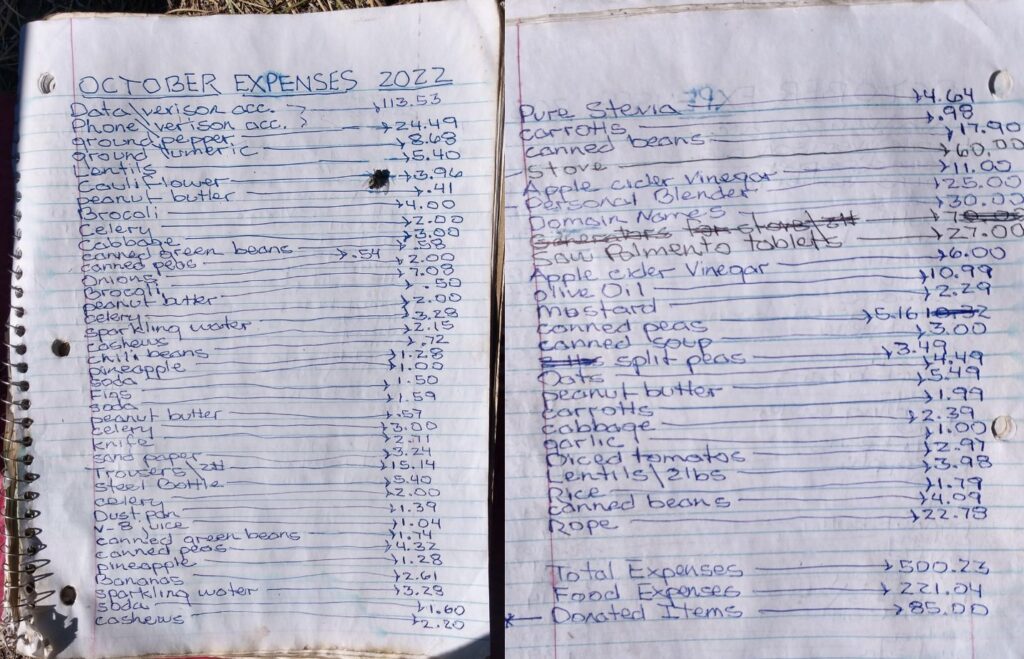 OCTOBER EXPENSES 2022
Data\verison acc. 113.53
Phone\verison acc. 24.49
ground pepper 8.68
ground tumeric 5.40
Lentils 3.96
Cauliflower .41
peanut butter 4.00
Brocoli 2.00
celery 3.00
cabbage .58
canned green beans .54 2.00
canned peas 7.08
Onions .50
Brocoli
peanut butter 2.00
celery 3.28
sparkling water 2.15
cashews .72
chili beans 1.28
pineapple 1.00
soda 1.50
Figs 1.59
soda
peanut butter .57
celery 3.00
knife 2.71
sand paper 3.24
Trousers\2# 15.14
Steel Bottle 5.40
celery 2.00
Dust pan 1.39
V-8 juice 1.04
canned green beans 1.74
canned peas 4.32
pineapple 1.28
Bananas 2.61
sparkling water 3.28
soda 1.60
cashews 2.20
Pure Stevia 4.64
carrotts .98
canned beans 17.90
stove 60.00
Apple cider Vinegar 11.00
Personal Blender 25.00
Domain Names 30.00
Saw Palmento tablets 27.00
Apple cider Vinegar 6.00
Olive Oil 10.99
mustard 2.29
canned peas 5.16
canned soup 3.00
split peas 3.49
Oats 4.49
peanut butter 5.49
carrotts 1.99
cabbage 2.39
garlic 1.00
Diced tomatos 2.97
Lentils\2lbs 3.98
Rice 1.79
canned beans 4.09
Rope 22.78
Total Expenses 500.23
Food Expenses 221.04
* Donated Items 85.00